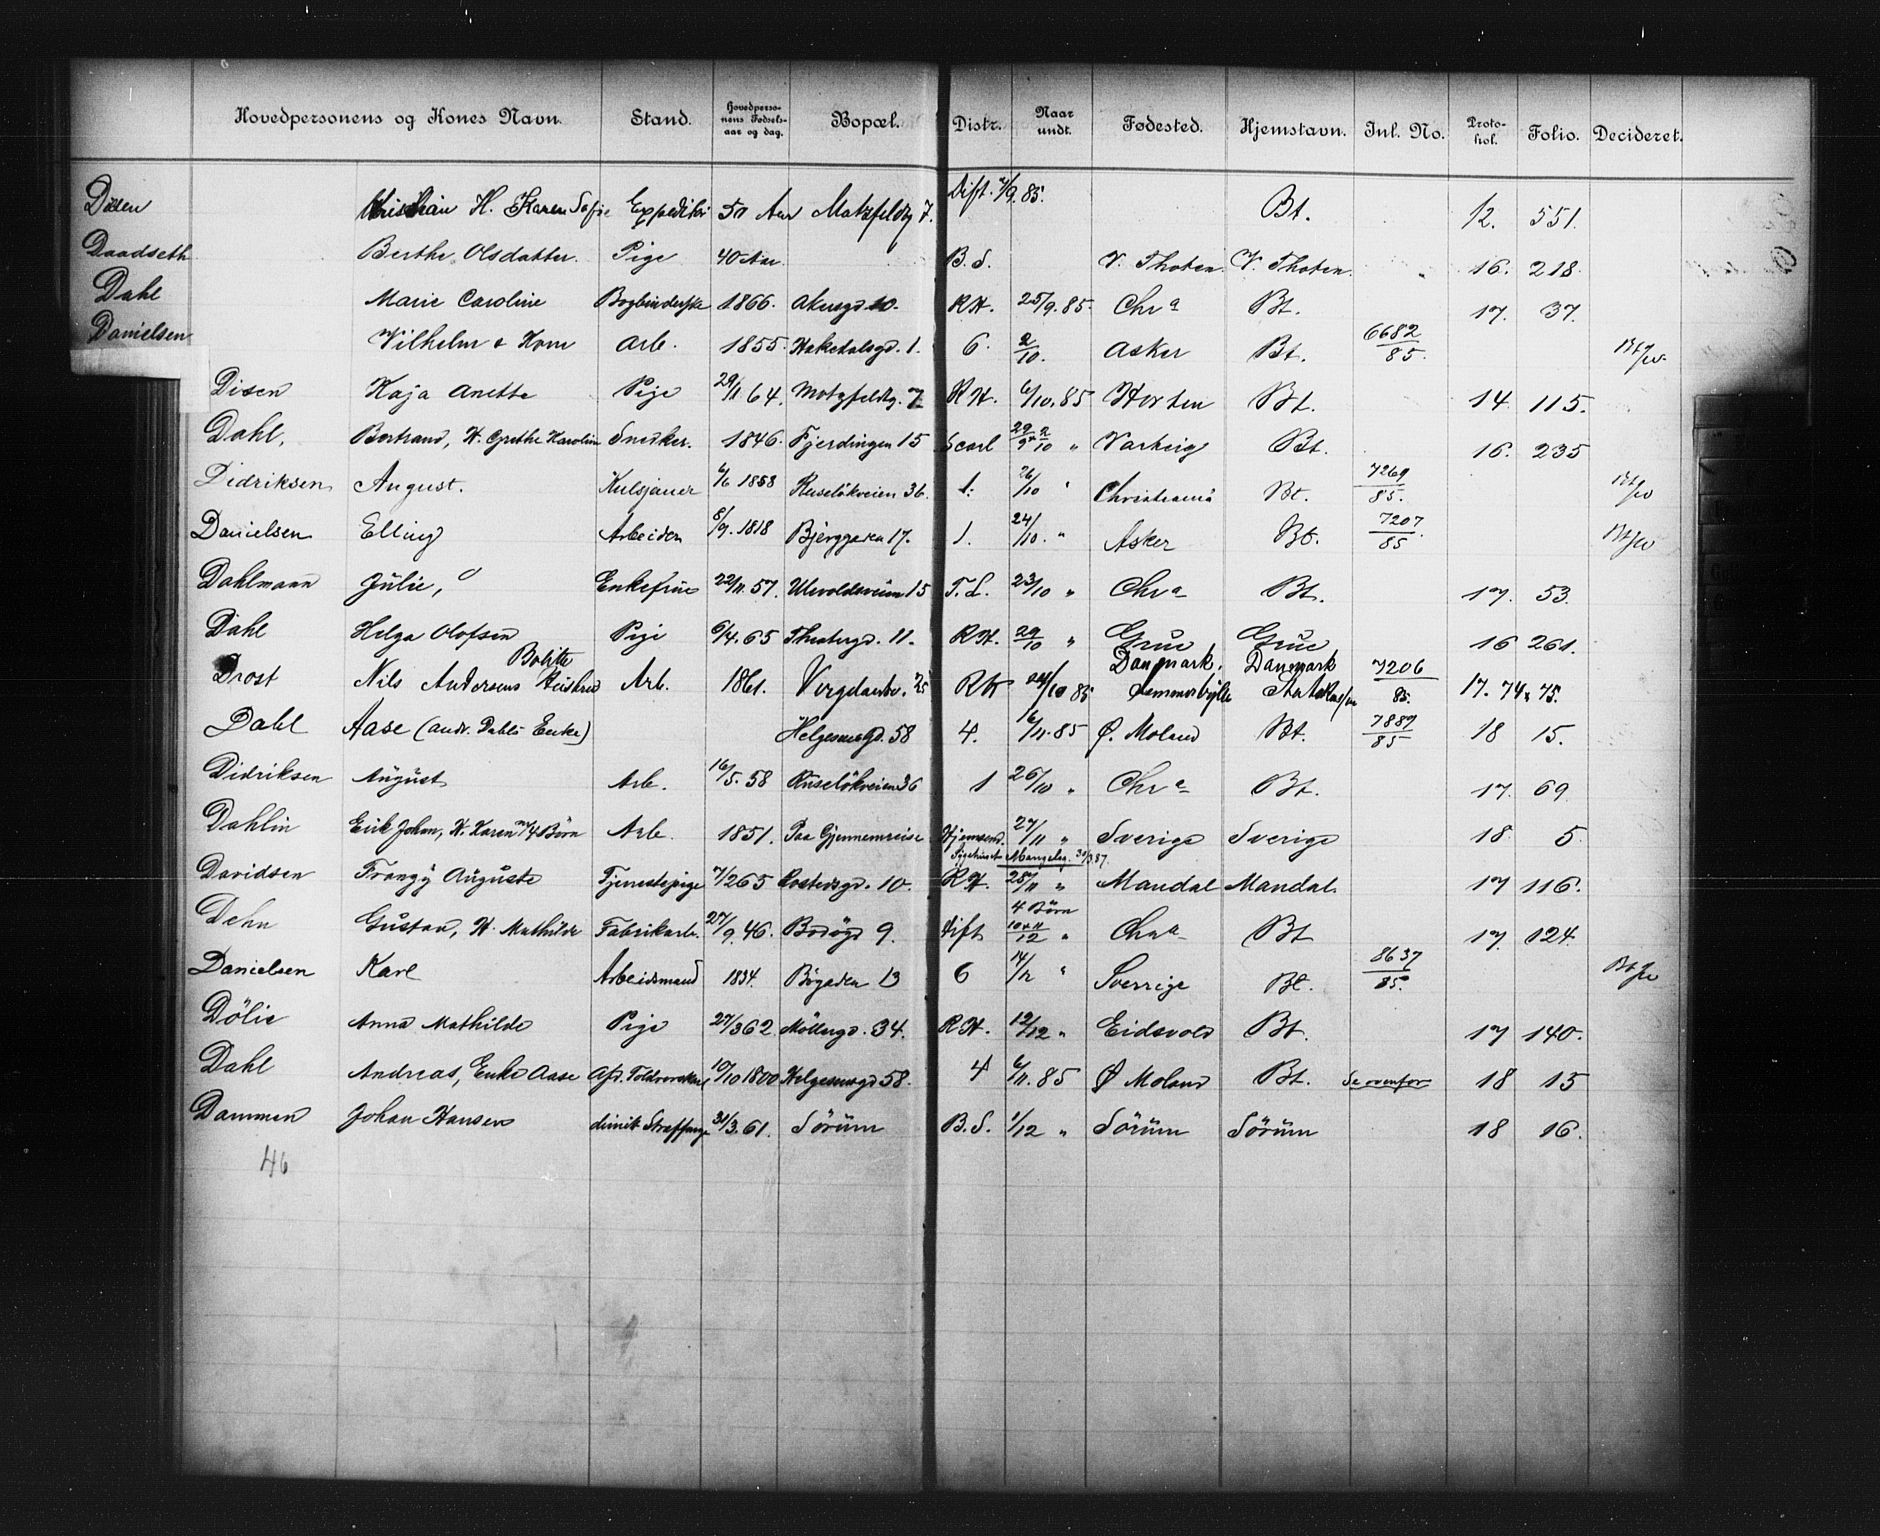 Hovedpersonens og Kones Navn. Stand. Hovedpersonens Fødselsaar og dag. Bopæl. Distr. Naar undt. Fødested. Hjemstavn. Inl. No. Protokol. Folio. Decideret.
Disen Kristian H. Karen Sofie Expeditør 50 Aar Motzfeldtg 7. Dift. 7/9.85. Bt. 12. 551.
Daadseth Berthe Olsdatter. Pige 40 Aar B.S. V. Thoten V. Thoten 16. 218.
Dahl Marie Caroline Bogbinderske 1866. Akersgd 10. RH. 25/9.85. Chr a Bt. 17. 37.
Danielsen Wilhelm & Kone Arb. 1855. Hakedalsgd. 1. 6. 2/10. Asker Bt. 6682/85.
Disen Kaja Anette Pige 29/11 64. Motzfeldtg. 7 RH. 6/10.85 Horten Bt. 14 115.
Dahl. Bertrand, H. Grethe Karoline Snedker. 1846. Fjerdingen 15 Scarl 29/9 + 2/10 " Varteig Bt. 16. 235
Didriksen August. Kulsjauer 6/6 1858 Ruseløkveien 36. 1. 26/10 " Christiania Bt. 7269/85.
Danielsen Elling Arbeider 8/9. 1818 Bjerggaden 17. 1. 24/10. " Asker Bt. 7207/85
Dahlmann Julie, Enkefrue 22/11.57. Ulevoldsveien 15 T.L. 23/10 " Chr a Bt. 17. 53.
Dahl Helga Olofsen Pige 6/4.65 Theatergd. 11. RH. 29/10 " Grue Grue 16 261.
Bolette Danmark. Danmark
Drost Nils Andersens Arb. 1861. 25 RH 10 85 7206/85. 17. 74 & 75.
Dahl Aase (Andr. Dahls Enke) Helgesensgd. 58 4. 6/11.85 Ø. Moland Bt. 7889/85 18 15.
Didriksen August Arb. 16/5.58 Ruseløkveien 36 1 26/10 " Chr a Bt. 17. 69.
Dahlin Erik Johan, H. Karen m/4 Børn Arb. 1851. Paa Gjennemreise Hjemsend. 27/11 " Sverige Sverige 18. 5.
Sygehuset Mangelsg. 31/3 87.
Davidsen Auguste Tjenestepige 7/2 65 Rostedsgd. 10. RH. 25/11 " Mandal Mandal 17 116.
4 Børn
Dehn Gustav, H. Mathilde Fabrikarb. 27/9.46. Bodøgd 9. Dift 10+11/12 " Chr a Bt 17. 124.
Danielsen Karl Arbeidsmand 1834. Bøgaden 13 6 14/12 " Sverrige Bt. 8637/85.
Dølie Anna Mathilde Pige 27/3 62 Møllergd. 34. RH. 12/12 " Eidsvold Bt. 17 140.
Dahl Andreas, Enke Aase Afsk. 10/10 1800 Helgesensgd 58. 4 6/11.85 Ø Moland Bt. Se ovenfor 18 15
Dammen Johan Hansen dimit. Straffange 31/3.61. Sørum B.S. 1/12 " Sørum Sørum 18 16.
46